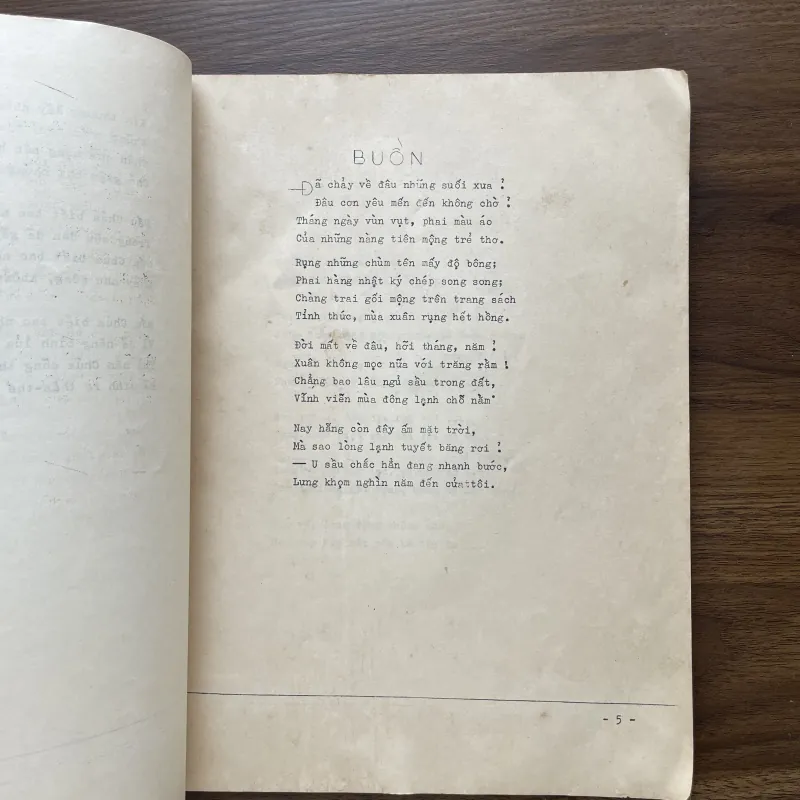 BUỒN
—Đã chảy về đâu những suối xưa ?
Đâu cơn yêu mến đến không chờ ?
Tháng ngày vùn vụt, phai màu áo
Của những nàng tiên mộng trẻ thơ.
Rụng những chùm tên mấy độ bông;
Phai hàng nhật ký chép song song;
Chàng trai gối mộng trên trang sách
Tỉnh thức, mùa xuân rụng hết hồng.
Đời mất về đâu, hỡi tháng, năm ?
Xuân không mọc nữa với trăng rằm !
Chẳng bao lâu ngủ sầu trong đất,
Vĩnh viễn mùa đông lạnh chỗ nằm.
Nay hãng còn đây ấm mặt trời,
Mà sao lòng lạnh tuyết băng rơi ?
— U sầu chắc hẳn đang nhanh bước,
Lưng khọm nghìn năm đến cửa tôi.
- 5 -